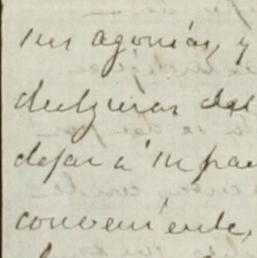 sus agonías, y
dulzuras del
dejar á su pad
conveniente,